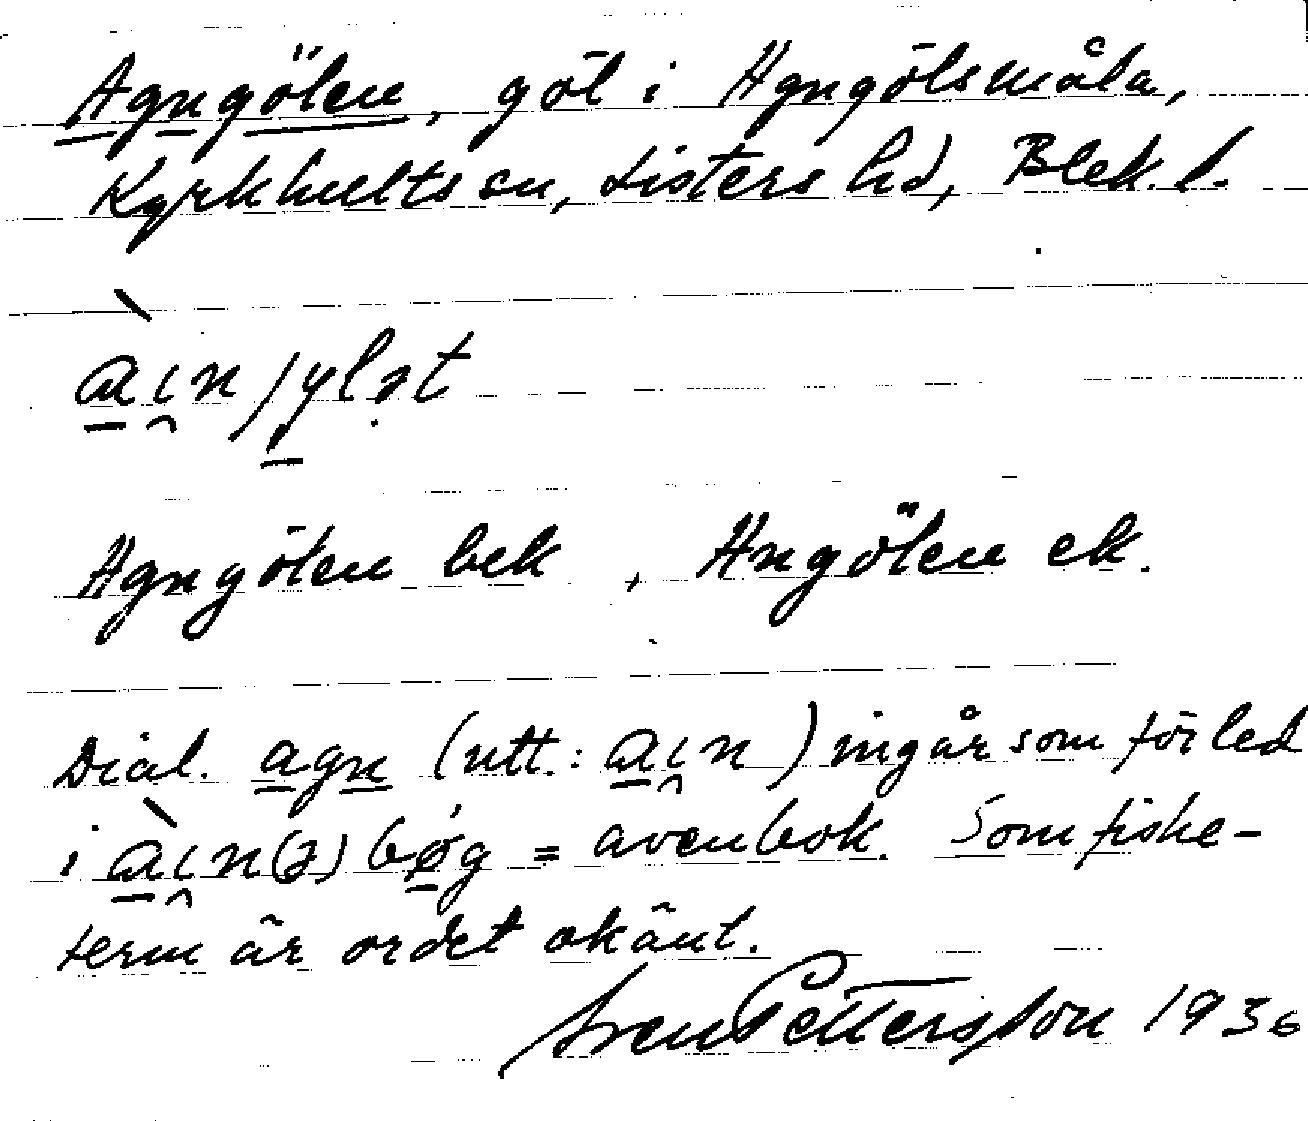 Agngölen, göl i Agngölsmåla,
Kyrkhults sn, Listers hd, Blek. l.
àı̯n/ylət
Agngölen bek, Angölen ek.
Dial. agn (utt.: aı̯n) ingår som förled
i àı̯n(ə)bǿg = avenbok. Som fiske-
term är ordet okänt.
Sven Pettersson 1936